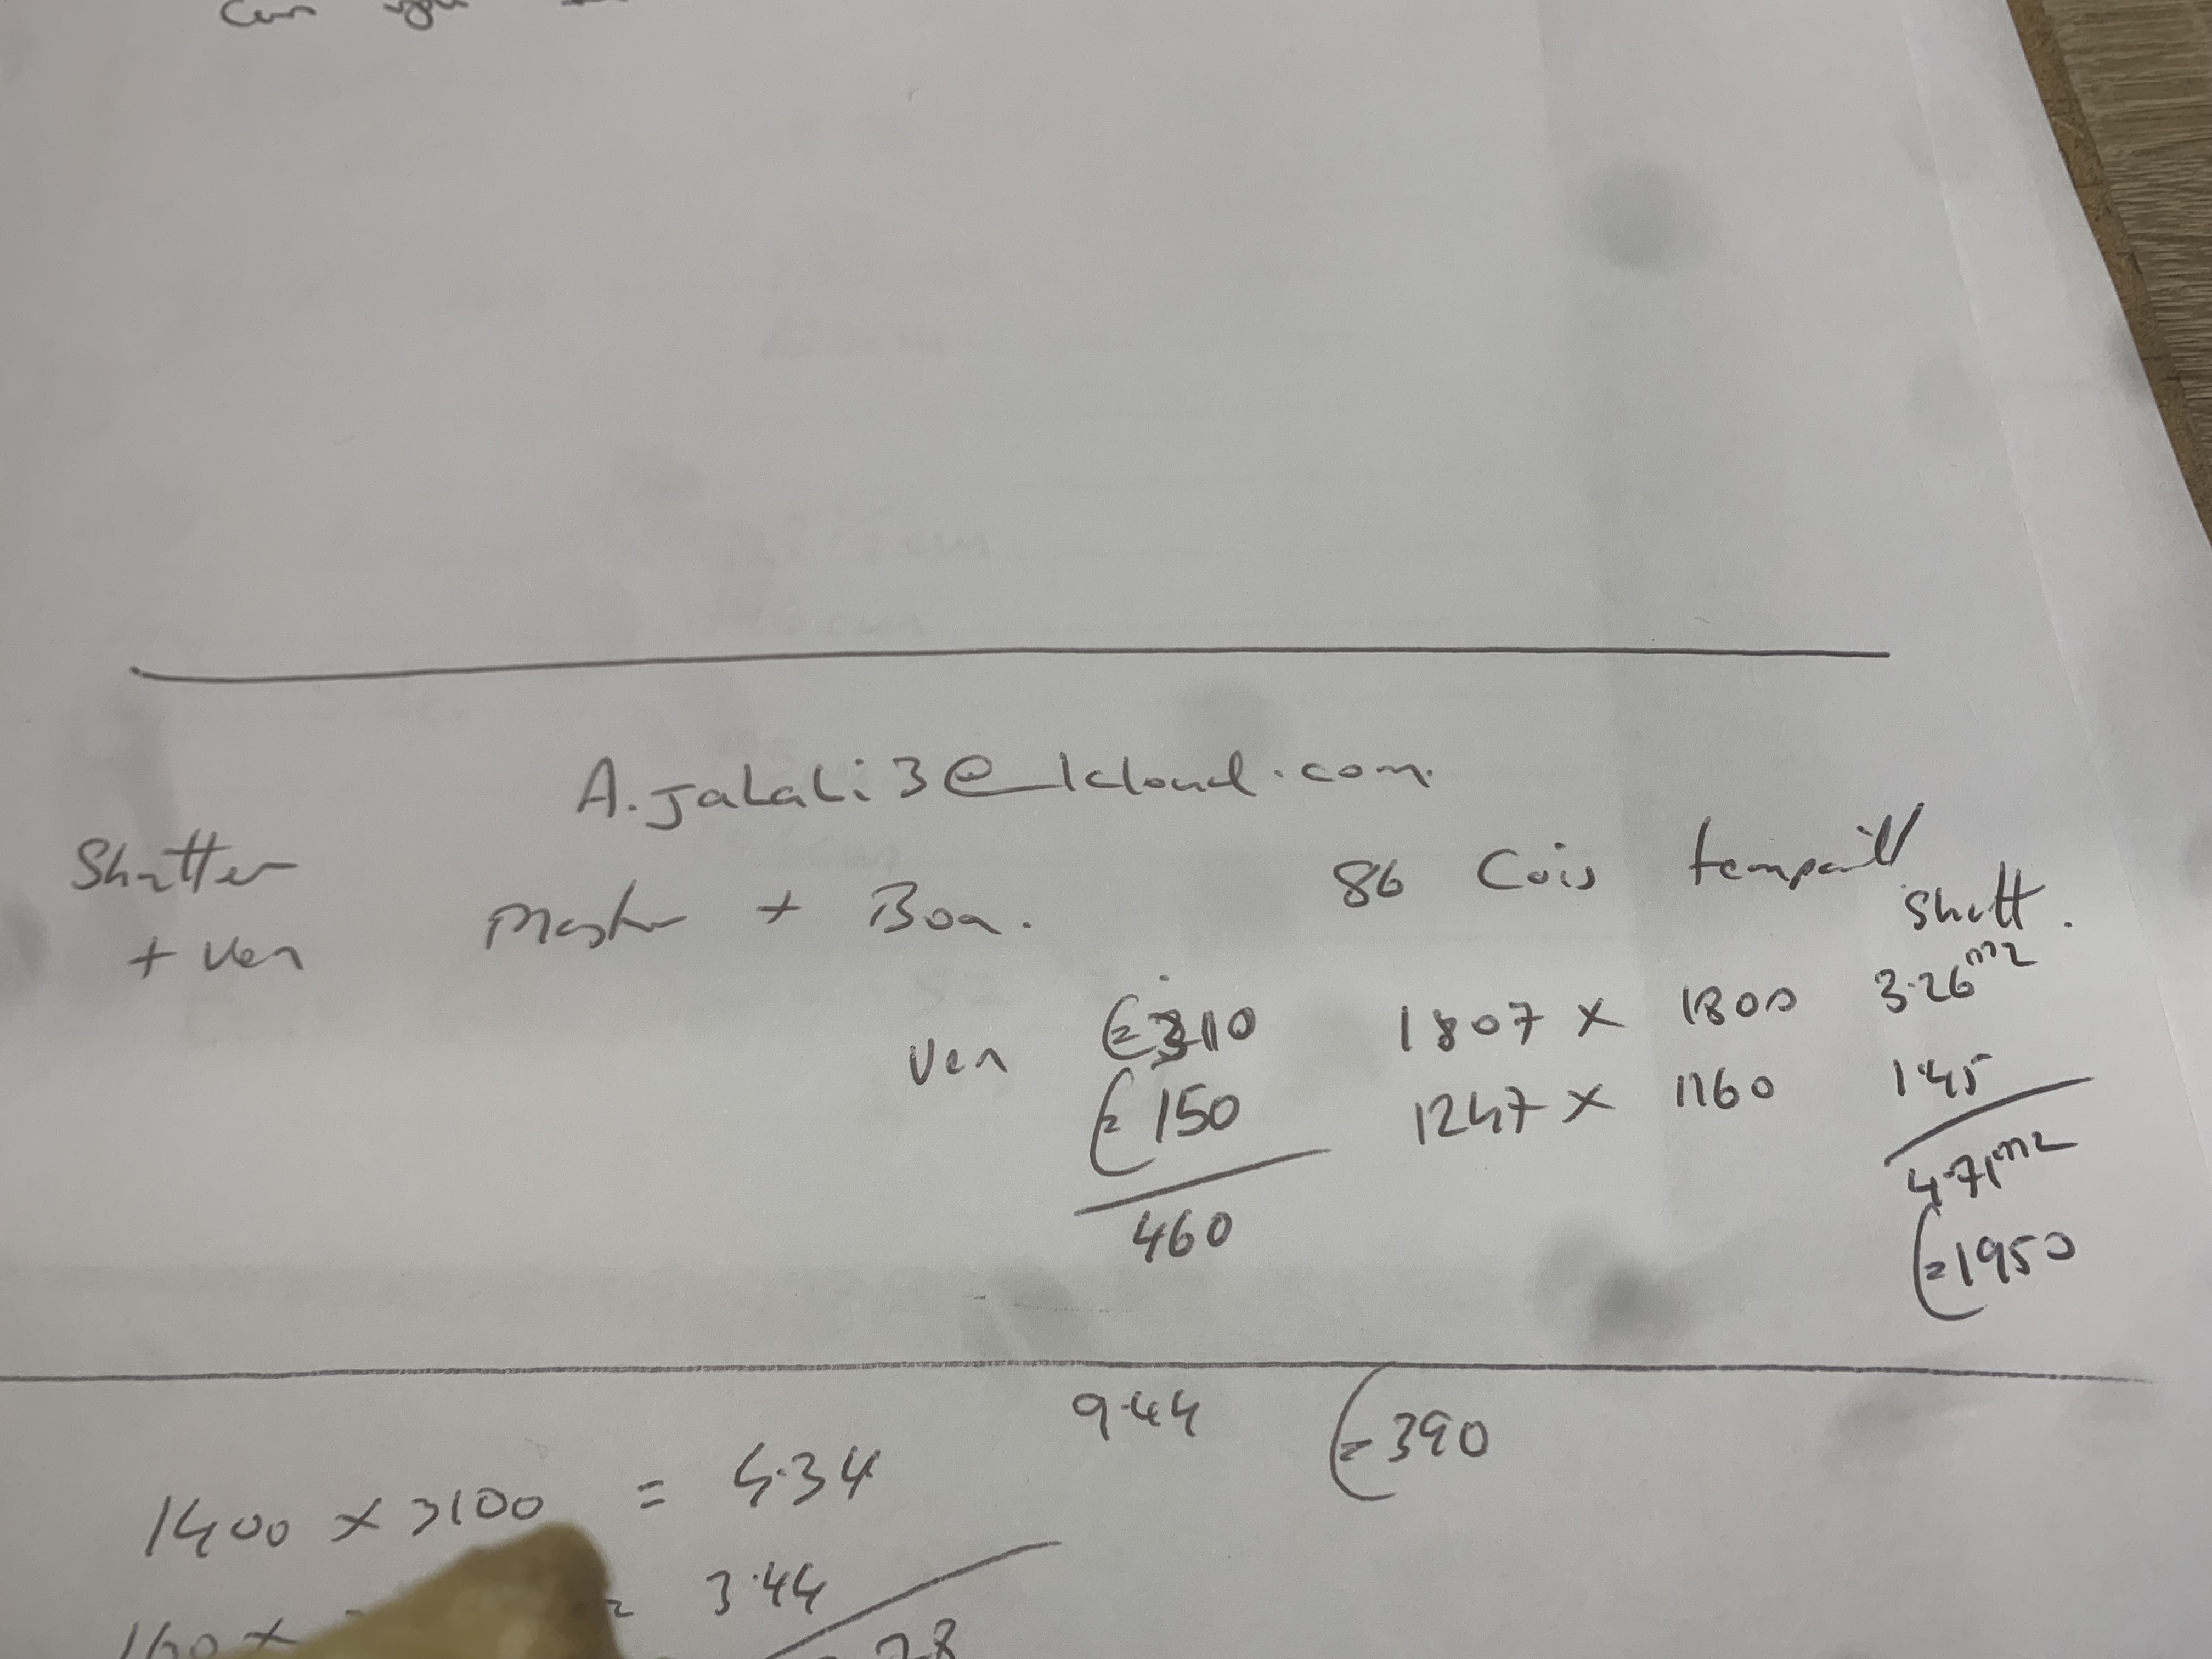 A.jalali3@icloud.com
Shutter
+ Ven
Master + Box.
86 Cois tempaill
Shutt.
Ven €310 1807 x 1800 3.26m2
€150 1247 x 1160 1.45
460
4.71m2
€1950
9.44 €390
1400 x 3100 = 4.34
160 x = 3.44